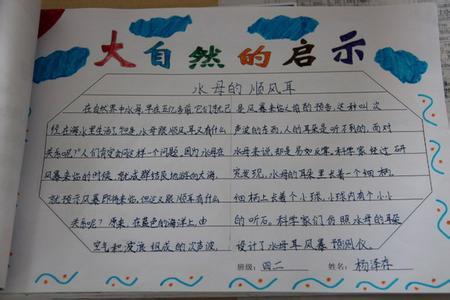 大自然的启示
水母的顺风耳
在自然界中水母,早在五亿年前,它们就已
经在海水里生活了,但是,水母跟顺风耳又有什么
关系呢?"人们肯定会问这样一个问题,因为水母在
风暴来临的时候,就成群结队地游向大海,
就预示风暴即将来临,但这又跟顺耳有什么
关系呢?原来,在蓝色的海洋上,由
空气和波浪组成的次声波,
是风暴来临之前的预告,这种叫次
声波的东西,人的耳朵是听不到的,而对
水母来说,却是易如反掌。科学家经过研
究发现,水母的耳朵里长着一个细柄,
细柄上长着个小球,小球内有个小小
的听石。科学家们仿照水母的耳朵
设计了水母耳风暴预测仪。
班级:四二 姓名:杨泽